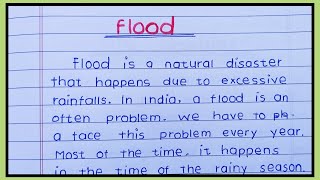 Flood
Flood is a natural disaster
that happens due to excessive
rainfalls. In India, a flood is an
often problem. We have to
a face this problem every year.
Most of the time, it happens
in the time of the rainy season.